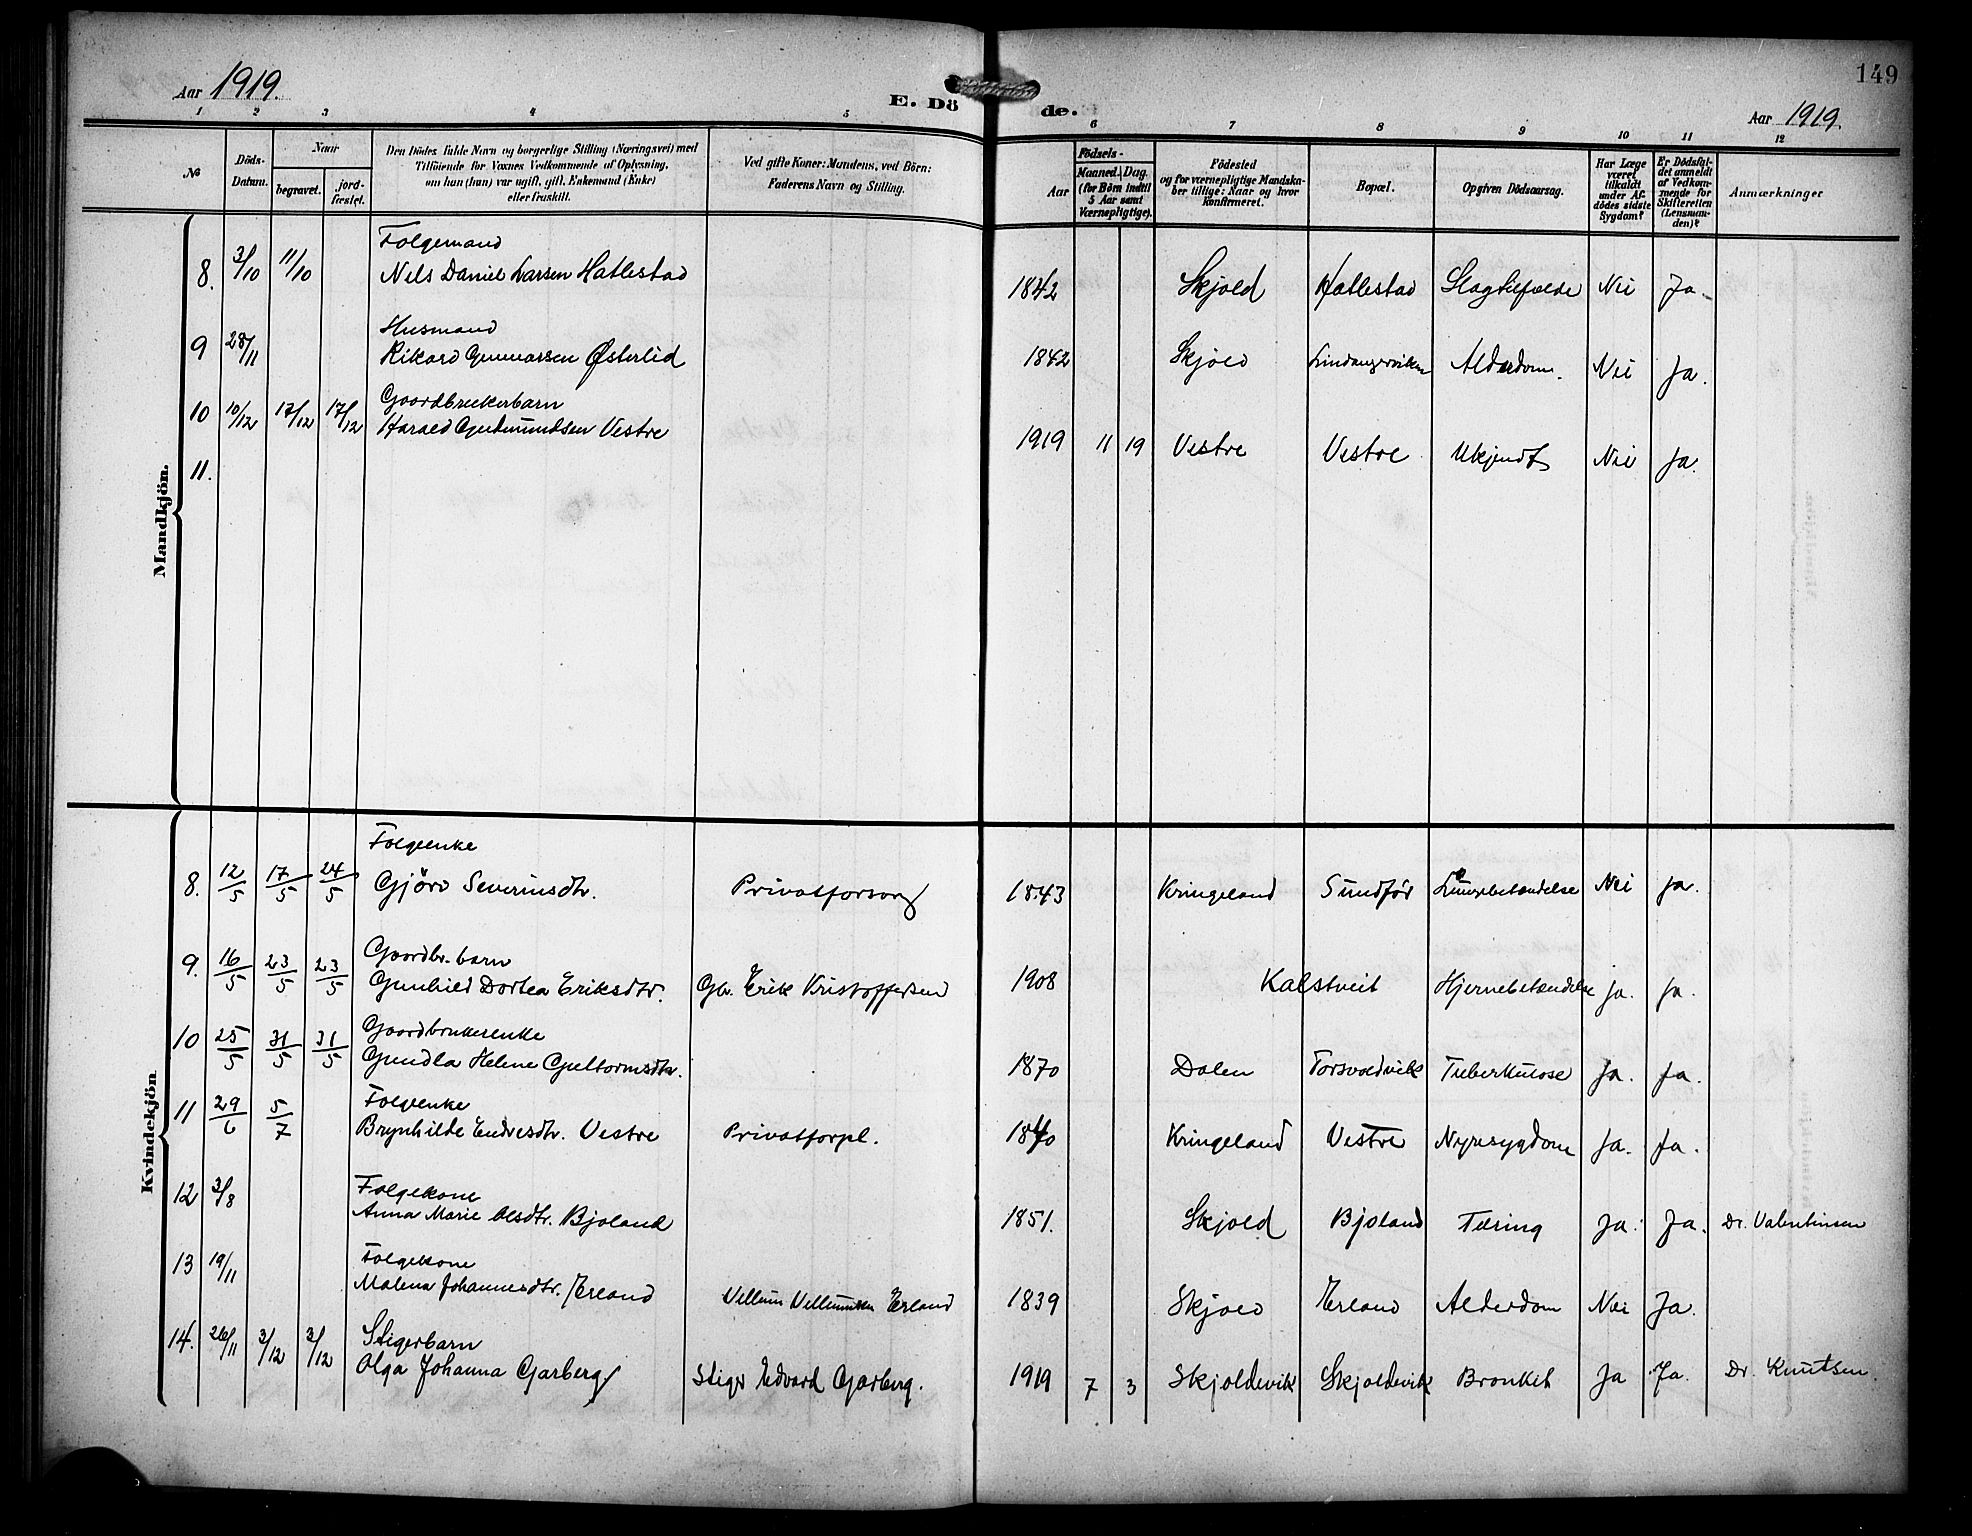 149
Aar 1919.
E. Döde.
Aar 1919.
1 2 3 4 5 6 7 8 9 10 11 12
№
Döds-Datum.
Naar
begravet.
jord-fæstet.
Den Dödes fulde Navn og borgerlige Stilling (Næringsvei) med
Tilföiende for Voxnes Vedkommende af Oplysning,
om han (hun) var ugift, gift, Enkemand (Enke)
eller fraskilt.
Ved gifte Koner: Mandens, ved Börn:
Faderens Navn og Stilling.
Födsels-
Aar
Maaned. Dag.
(for Börn indtil
5 Aar samt
Værnepligtige).
Födested
og for værnepligtige Mandska-
ber tillige: Naar og hvor
konfirmeret.
Bopæl.
Opgiven Dödsaarsag.
Har Læge
været
tilkaldt
under Af-
dödes sidste
Sygdom?
Er Dödsfal-
det anmeldt
af Vedkom-
mende for
Skifteretten
(Lensman-
den)?
Anmærkninger
Mandkjön.
Folgemand
8. 3/10 11/10 Nils Daniel Larsen Hatlestad 1842 Skjold Hatlestad Slagtilfælde Nei Ja
Husmand
9 28/11 Rikard Gunnarsen Østerlid 1842 Skjold Alderdom. Nei Ja.
Gaardbrukerbarn
10 10/12 17/12 17/12 Harald Gudmundsen Vestre 1919 11 19 Vestre Vestre Ukjendt Nei Ja.
11.
Kvindekjön
Folgeenke
8. 12/5 17/5 24/5 Gjöro Severinsdtr. Privatforsorg 1843 Kringeland Sundför Lungebetændelse Nei Ja.
Gaardbr. barn
9. 16/5 23/5 23/5 Gunhild Dortea Eriksdtr. Gbr. Erik Kristoffersen 1908 Kalstveit Hjernebetændelse Ja. Ja.
Gaardbrukerenke
10 25/5 31/5 31/5 Gundla Helene Guttormsdtr. 1870 Dalen Torsvoldvik Tuberkulose Ja. Ja.
Folgeenke
11 29/6 5/7 Brynhilde Endresdtr. Vestre Privatforpl. 1840 Kringeland Vestre Nyresygdom Ja. Ja.
Folgekone
12 3/8 Anna Marie Olsdtr. Bjoland 1851. Skjold Bjoland Tæring Ja. Ja. Dr. Valentinsen
Folgekone
13 19/11 Malena Johannesdtr. Erland Vellum Vellumsen Erland 1839 Skjold Erland Alderdom Nei Ja.
Stigerbarn
14. 26/11 3/12 3/12 Olga Johanna Garberg Stiger Edvard Garberg. 1919 7 3 Skjoldevik Skjoldevik Bronkit Ja Ja. Dr. Knutsen.